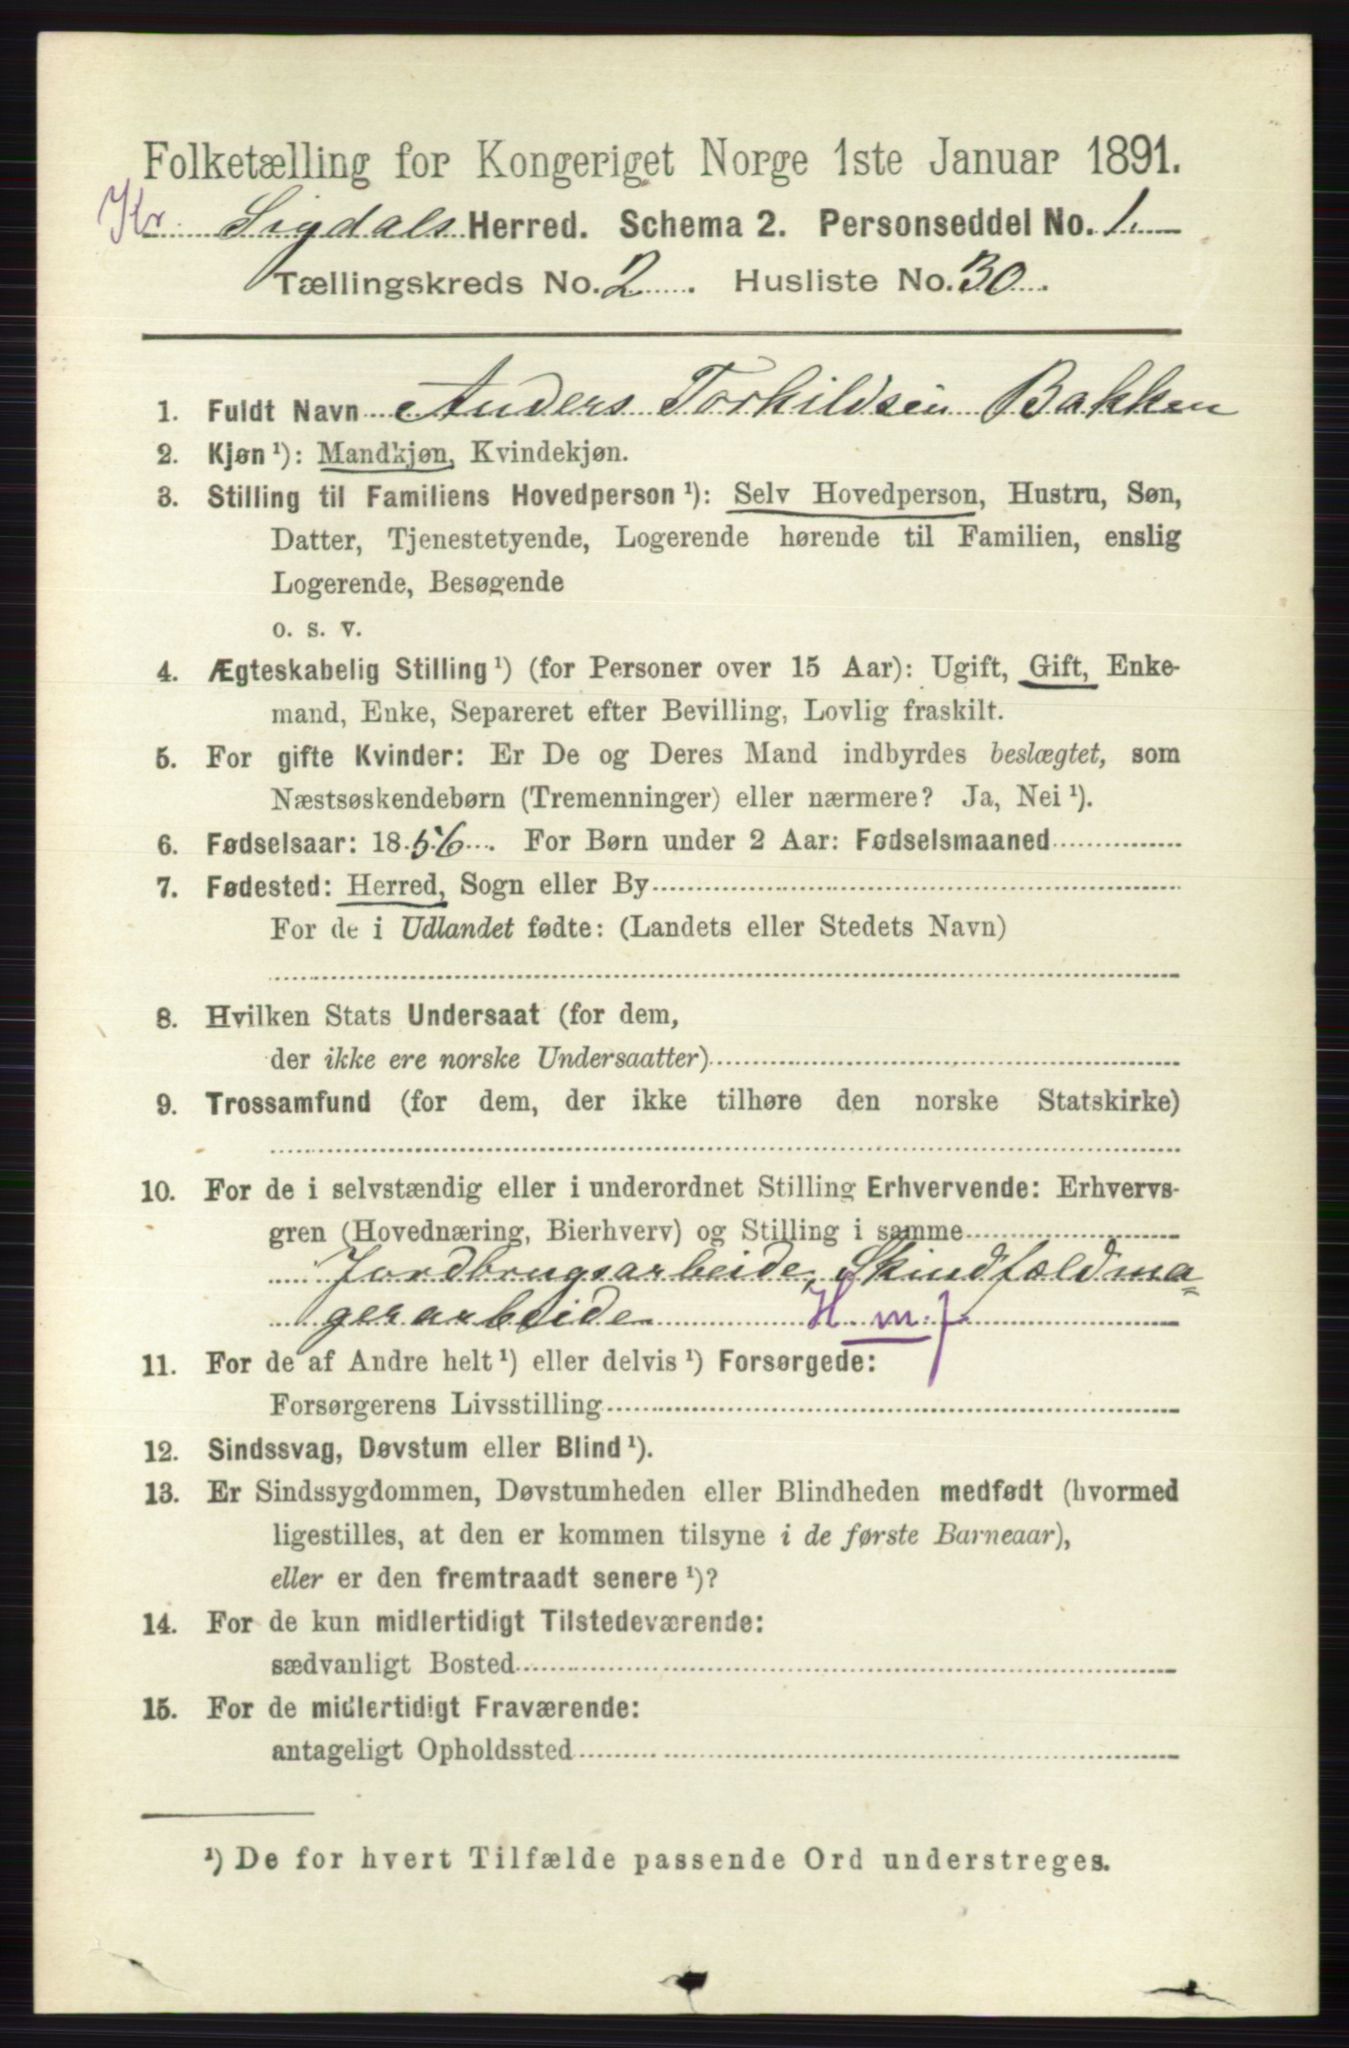 Folketælling for Kongeriget Norge 1ste Januar 1891.
Kr. Sigdals Herred. Schema 2. Personseddel No. 1.
Tællingskreds No. 2. Husliste No. 30.
1. Fuldt Navn Anders Torkildsen Bakken
2. Kjøn ¹): Mandkjøn, Kvindekjøn.
3. Stilling til Familiens Hovedperson ¹): Selv Hovedperson, Hustru, Søn,
Datter, Tjenestetyende, Logerende hørende til Familien, enslig
Logerende, Besøgende
o. s. v.
4. Ægteskabelig Stilling ¹) (for Personer over 15 Aar): Ugift, Gift, Enke-
mand, Enke, Separeret efter Bevilling, Lovlig fraskilt.
5. For gifte Kvinder: Er De og Deres Mand indbyrdes beslægtet, som
Næstsøskendebørn (Tremenninger) eller nærmere? Ja, Nei ¹).
6. Fødselsaar: 1856. For Børn under 2 Aar: Fødselsmaaned
7. Fødested: Herred, Sogn eller By
For de i Udlandet fødte: (Landets eller Stedets Navn)
8. Hvilken Stats Undersaat (for dem,
der ikke ere norske Undersaatter)
9. Trossamfund (for dem, der ikke tilhøre den norske Statskirke)
10. For de i selvstændig eller i underordnet Stilling Erhvervende: Erhvervs-
gren (Hovednæring, Bierhverv) og Stilling i samme
Jordbrugsarbeide, Skindfældma=
gerarbeide H.m.f.
11. For de af Andre helt ¹) eller delvis ¹) Forsørgede:
Forsørgerens Livsstilling
12. Sindssvag, Døvstum eller Blind ¹).
13. Er Sindssygdommen, Døvstumheden eller Blindheden medfødt (hvormed
ligestilles, at den er kommen tilsyne i de første Barneaar),
eller er den fremtraadt senere ¹)?
14. For de kun midlertidigt Tilstedeværende:
sædvanligt Bosted
15. For de midlertidigt Fraværende:
antageligt Opholdssted
¹) De for hvert Tilfælde passende Ord understreges.